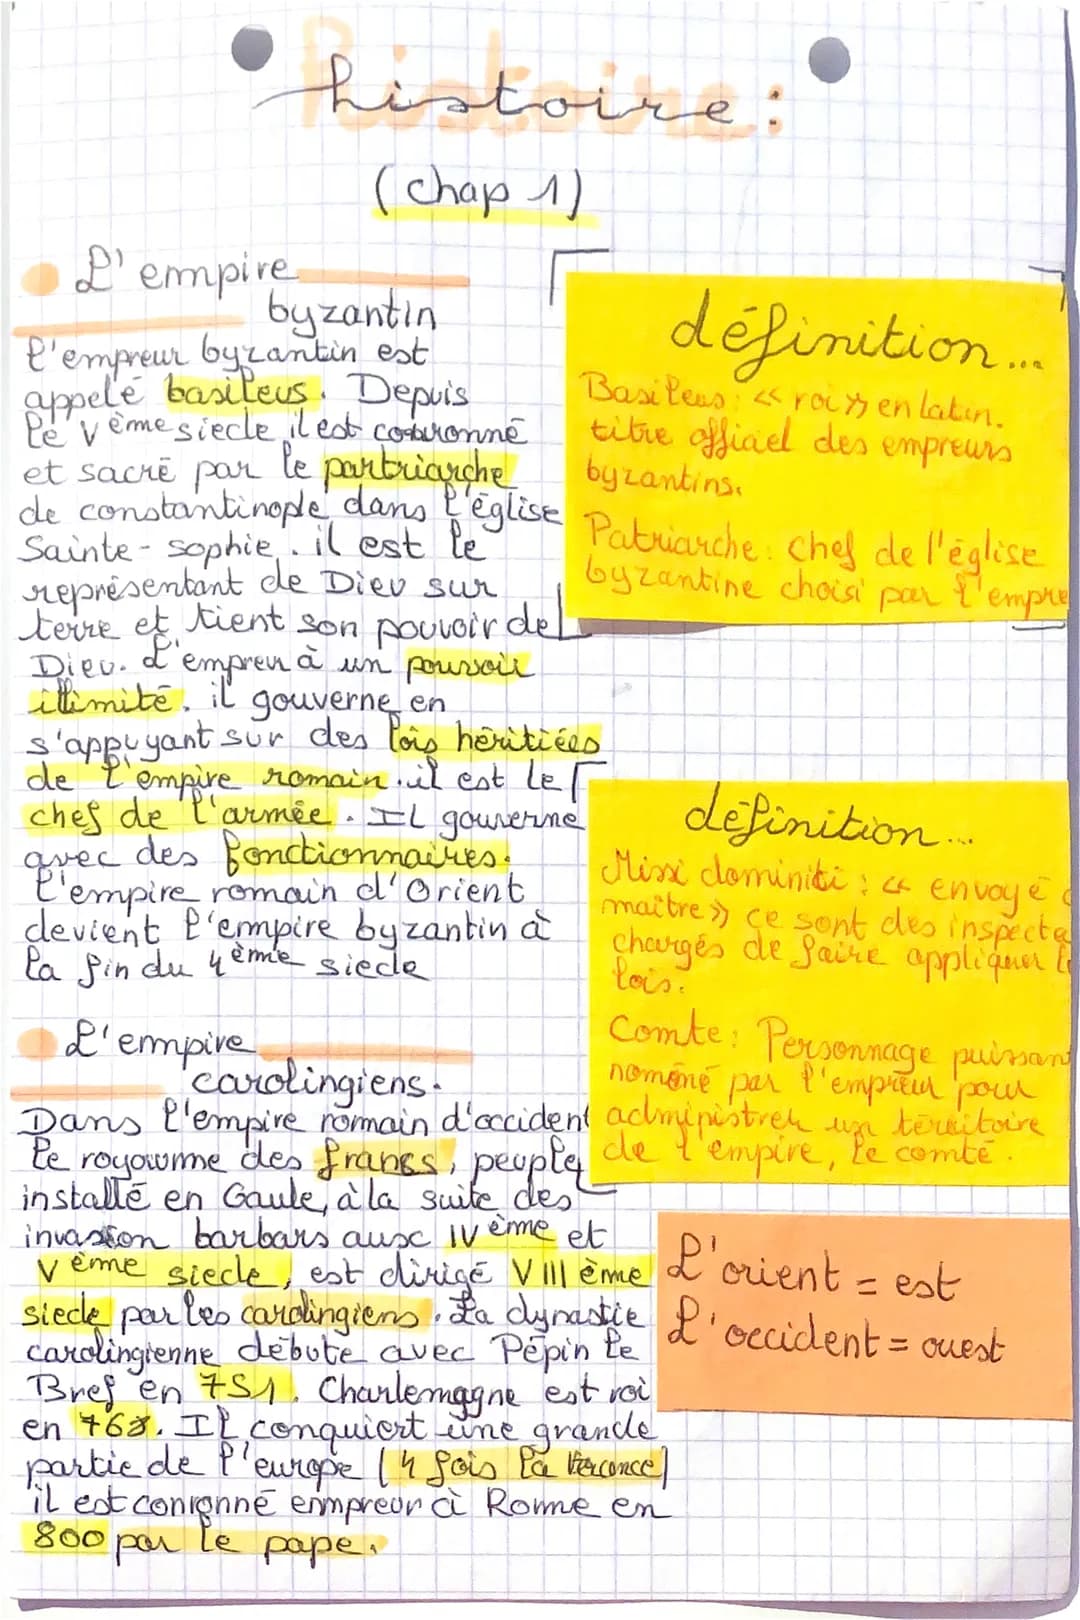 histoire:
(chap 1)
L'empire
byzantin
l'empreur byzantin est
appelé basileus. Depuis
le Vème siecle il est couronné
et sacré par le partriarche
de constantinople dans l'église
Sainte-sophie. il est le
représentant de Dieu sur
terre et tient son pouvoir de
Dieu. L'empreu à un pouvoir
illimité. il gouverne en
s'appuyant sur des lois héritiées
de l'empire romain. il est le
chef de l'armée. IL gouverne
avec des fonctionnaires.
L'empire romain d'Orient
devient l'empire byzantin à
la fin du 4ème siecle
définition...
Basileus: « roi » en latin.
titre officiel des empreurs
byzantins.
Patriarche: chef de l'église
byzantine choisi par l'empre
L'empire
carolingiens.
Dans l'empire romain d'occident
le royaume des francs, peuple
installé en Gaule, à la suite des
invasion barbars aux IVème et
Vème siecle, est dirigé VIIIème
siecle par les carolingiens. La dynastie
carolingienne débute avec Pépin le
Bref en 751. Charlemagne est roi
en 768. Il conquiert une grande
partie de l'europe (4 fois la France)
il est conronné empreur à Rome en
800 par le pape.
définition...
Missi dominiti: « envoyé d
maître » ce sont des inspecte
chargés de faire appliquer le
lois.
Comte: Personnage puissan
nommé par l'empreur pour
administrer un térritoire
de l'empire, le comté.
L'orient = est
L'occident = ouest